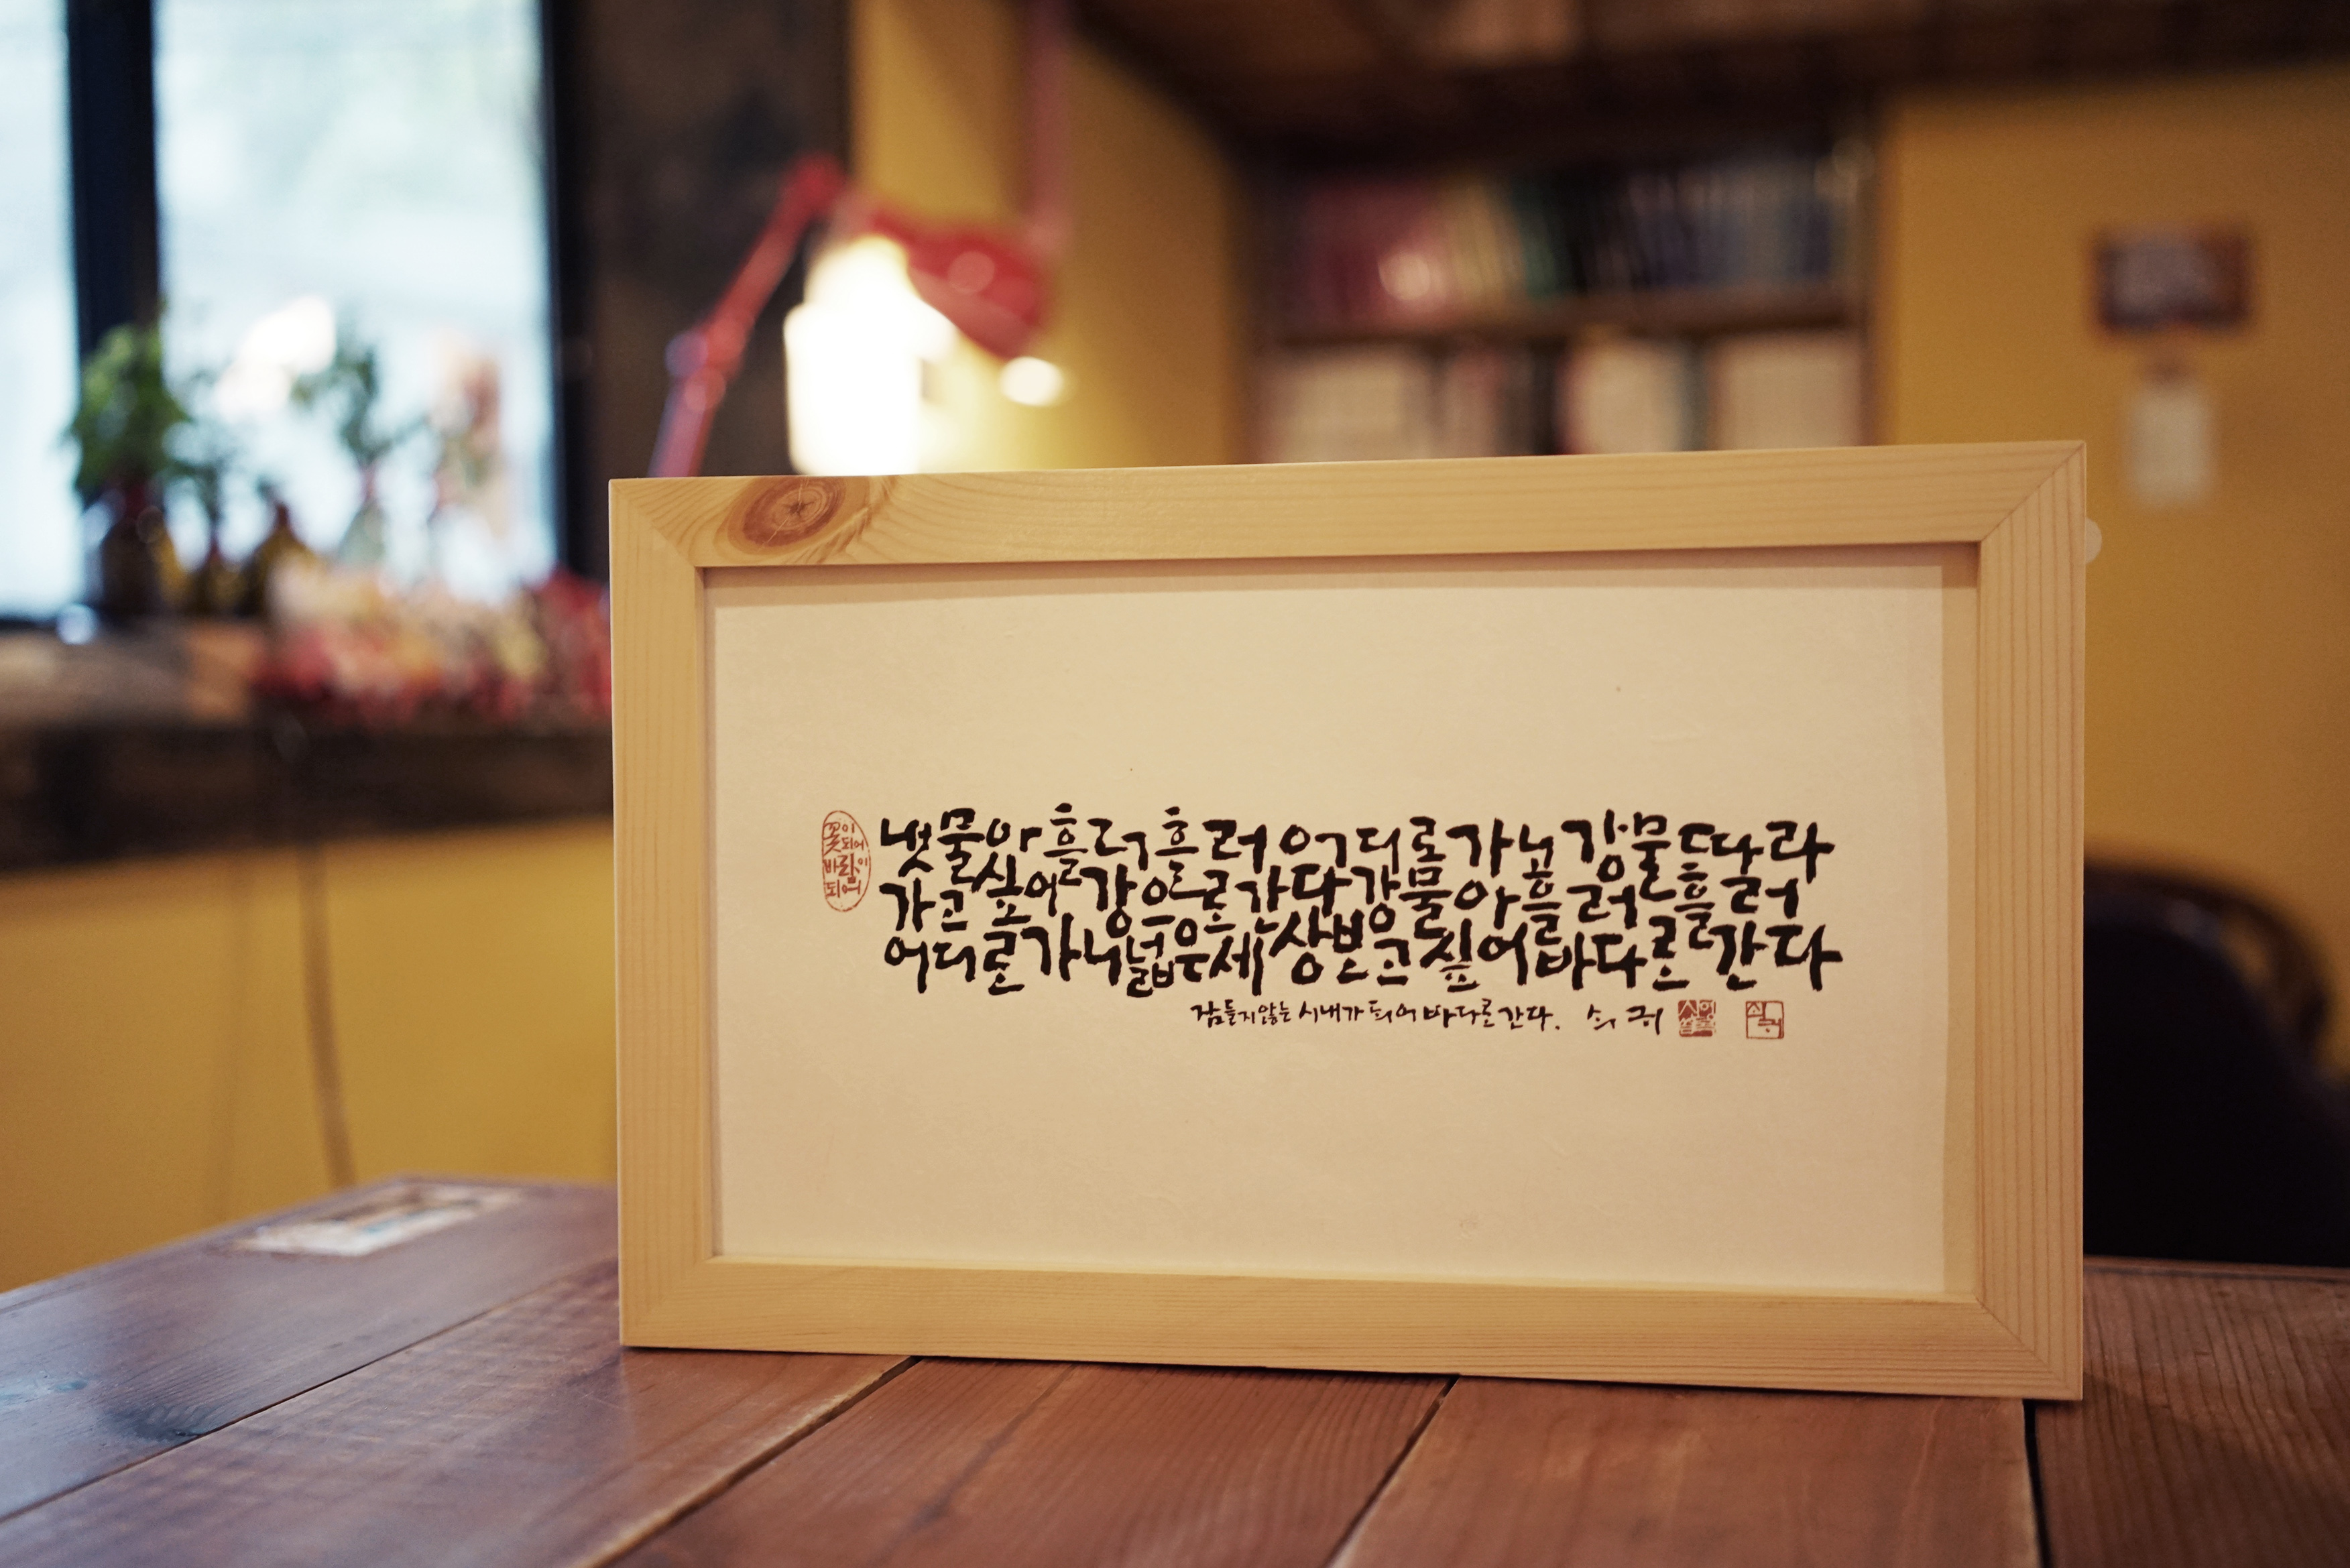 꽃이
되어
바람이
되어
냇물아 흘러 흘러 어디로 가니 강물 따라
가고 싶어 강으로 간다 강물아 흘러 흘러
어디로 가니 넓은 세상 보고 싶어 바다로 간다
잠들지 않는 시내가 되어 바다로 간다. 쇠귀